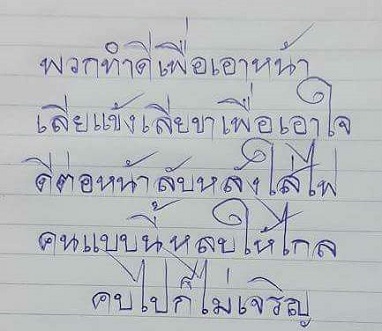 พวกทำดีเพื่อเอาหน้า
เลียแข้งเลียขาเพื่อเอาใจ
ดีต่อหน้าลับหลังใส่ไฟ
คนแบบนี้หลบให้ไกล
คบไปก็ไม่เจริญ